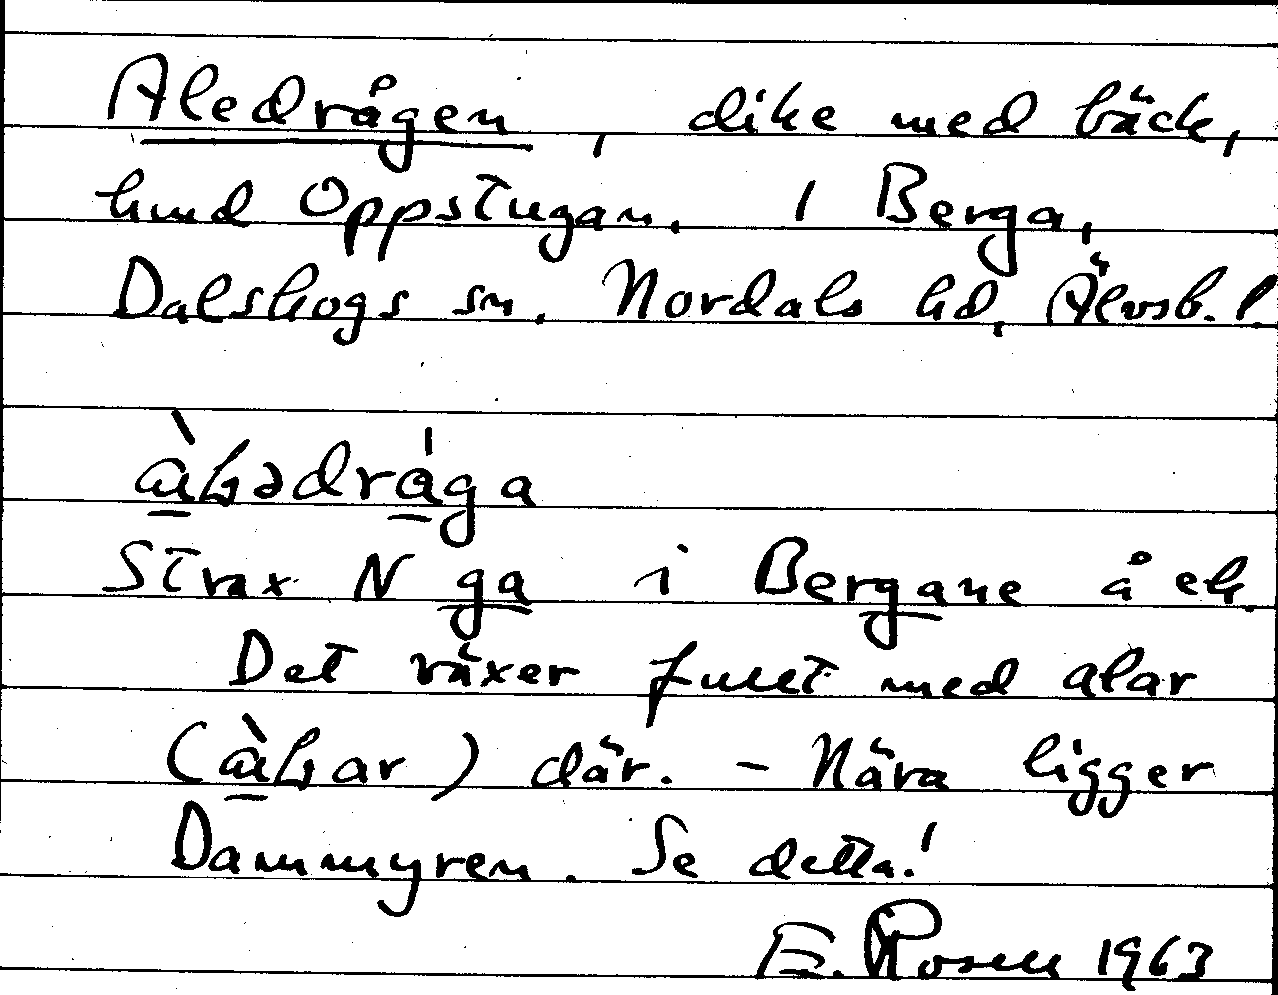 Aledrågen, dike med bäck,
hmd Oppstugan. 1 Berga,
Dalskogs sn. Nordals hd, Älvsb. l.
Strax N ga i Bergane å ek.
Det växer fullt med alar
där. - Nära ligger
Dammyren. Se detta!
E. Rosell 1963